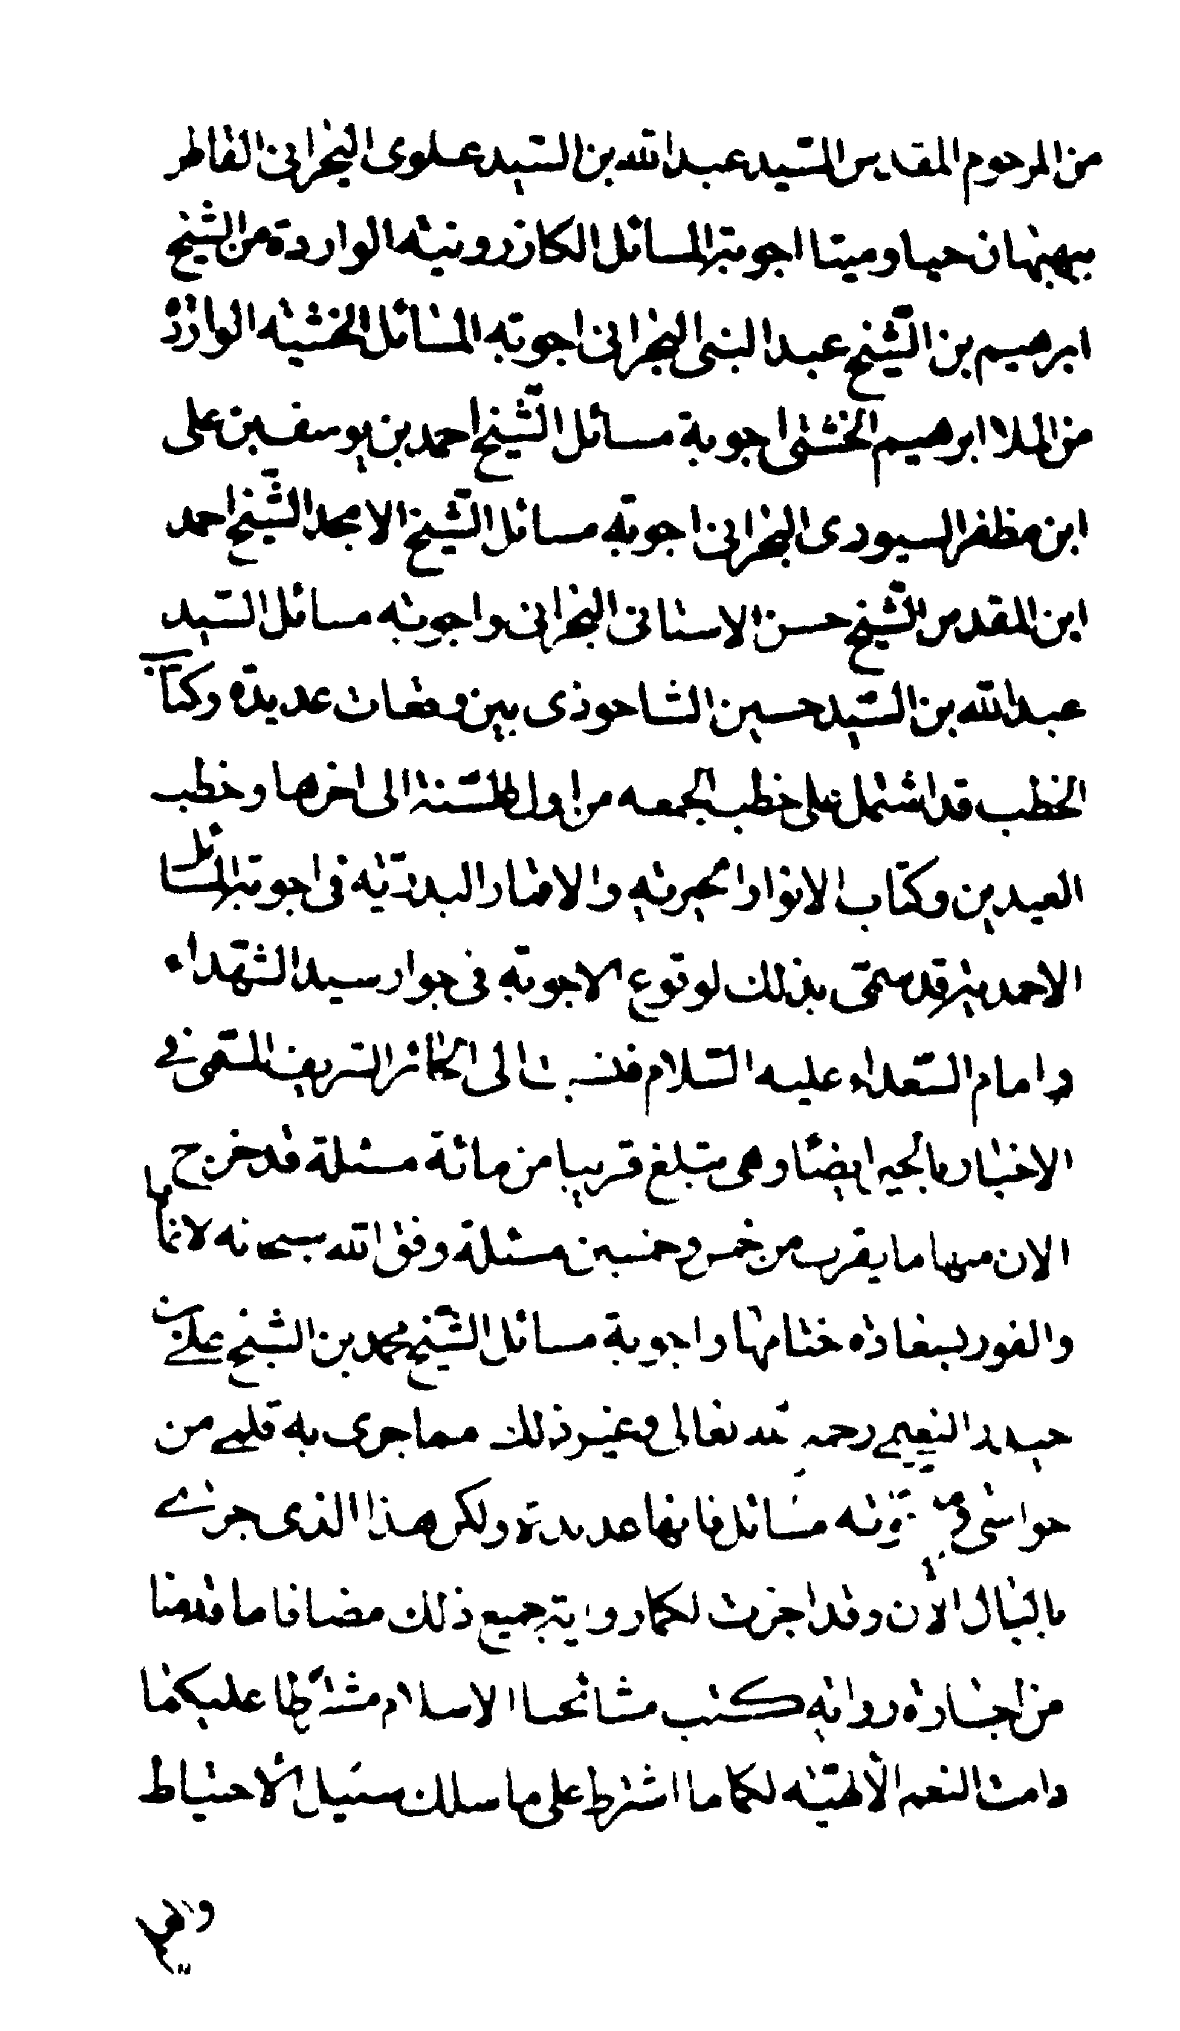 من المرحوم المقدس السيد عبد الله بن السيد علوى البحرانى القاطن
ببهبهان حيا وميتا اجوبة المسائل الكازرونيه الواردة من الشيخ
ابرهيم بن الشيخ عبد النبى البحرانى اجوبه المسائل الخشتيه الوارده
من الملا ابرهيم الخشتى اجوبة مسائل الشيخ احمد بن يوسف بن على
ابن مظفر السيورى البحرانى اجوبه مسائل الشيخ الامجد الشيخ احمد
ابن المقدس الشيخ حسن الدمستانى البحرانى واجوبه مسائل السيد
عبد الله بن السيد حسين الشاخورى بين دفعات عديدة وكتاب
الخطب قد اشتمل على خطب الجمعه من اول السنة الى اخرها وخطب
العيدين وكتاب الانوار الحيريه والاقمار البدريه فى اجوبة المسائل
الاحمدية قد سمى بذلك لوقوع الاجوبه فى جوار سيد الشهداء
وامام السعداء عليه السلام فنسبت الى الحائر الشريف المسمى فى
الاخبار بالحير ايضا وهى تبلغ قريبا من مائة مسئلة قد خرج
الان منها ما يقرب من خمس وخمسين مسئلة وفق الله سبحانه لاتمامها
والفوز بسعادة ختامها واجوبة مسائل الشيخ محمد بن الشيخ على بن
حيدر النعيمى رحمه الله تعالى وغير ذلك مما جرى به قلمى من
حواشى مسائل فانها عديدة ولكن هذا الذى جرى
بالبال الان وقد اجزت لكما رواية جميع ذلك مضافا ما قدمنا
من اجازه روايه كتب مشائخنا الاسلام مشترطا عليكما
دامت النعم الالهيه لكما ما اشترط على ما سلك سبيل الاحتياط